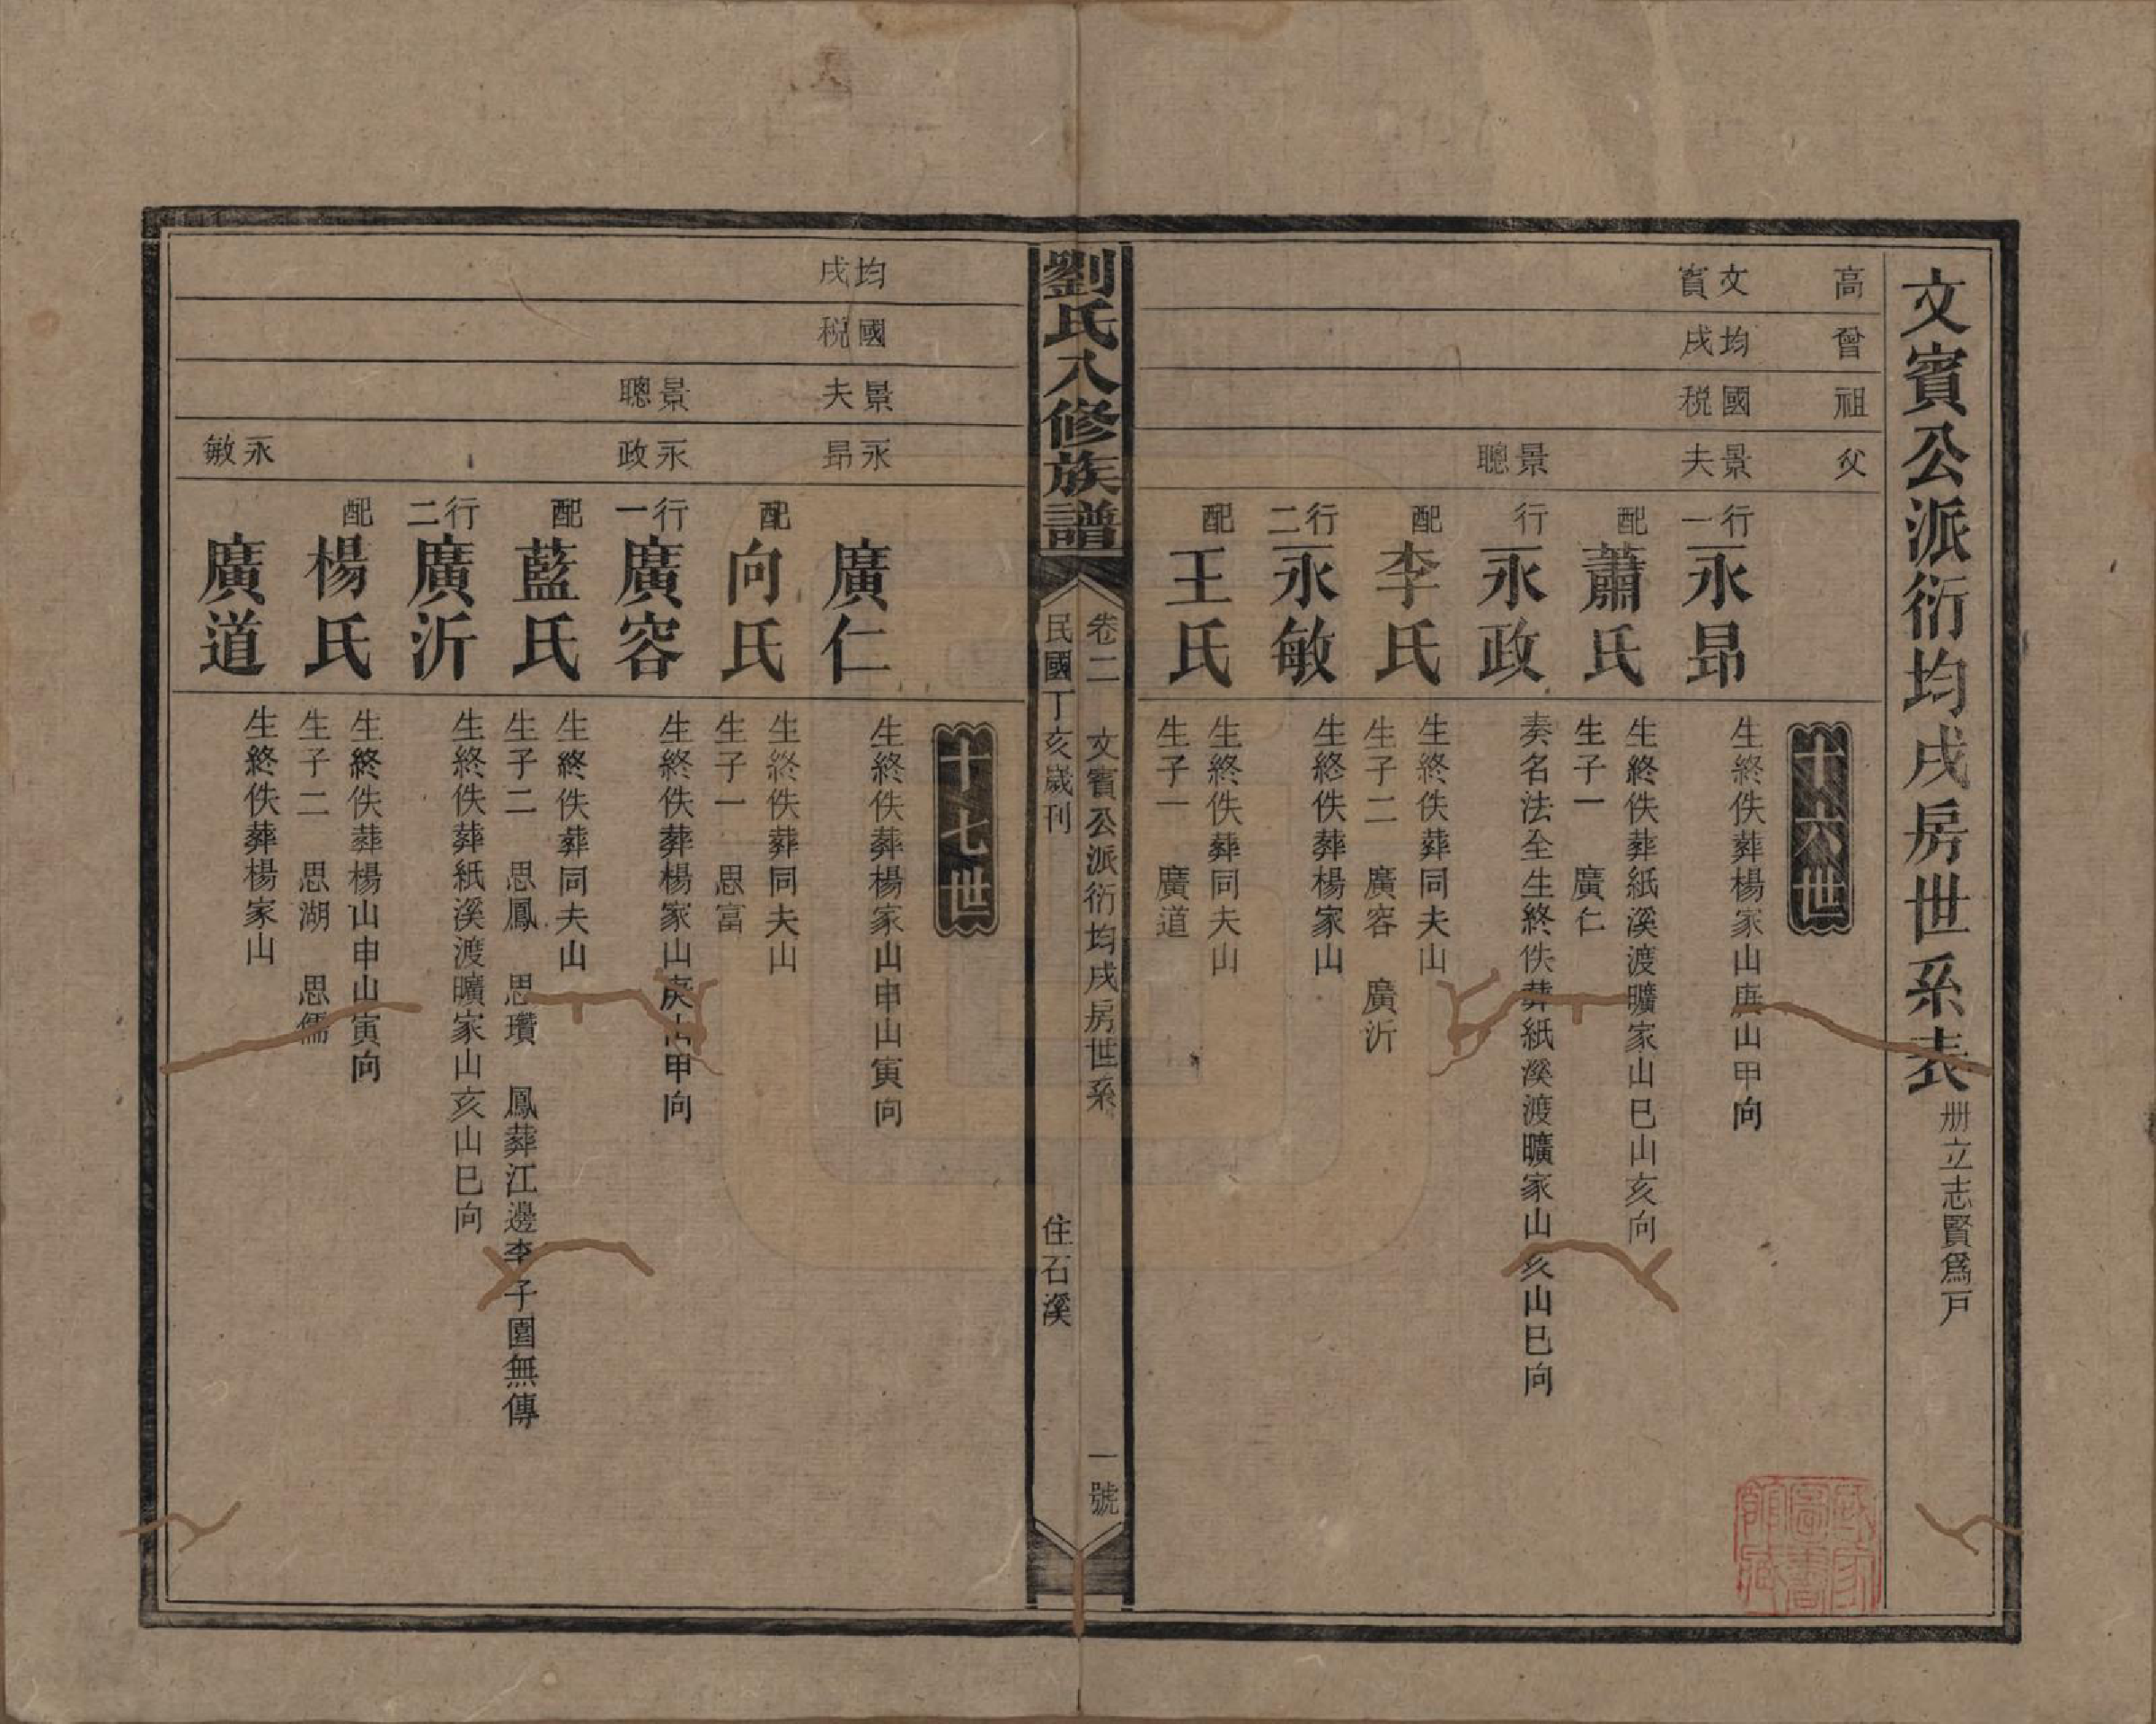 文賓公派衍均戌房世系表 册立志賢爲戸
高 曾 祖 父
十六世
文賓 均戌 國税 景夫
行一 永昂
生終佚葬楊家山庚山甲向
配 蕭氏
生終佚葬紙溪渡曠家山巳山亥向
生子一 廣仁
景聰
行一 永政
奏名法全生終佚葬紙溪渡曠家山亥山巳向
配 李氏
生終佚葬同夫山
生子二 廣容 廣沂
行二 永敏
生終佚葬楊家山
配 王氏
生終佚葬同夫山
生子一 廣道
劉氏八修族譜
卷二 文賓公派衍均戌房世系 一號
民國丁亥歲刊 住石溪
十七世
均戌 國税 景夫 永昂
廣仁
生終佚葬楊家山申山寅向
配 向氏
生終佚葬同夫山
生子一 思富
景聰 永政
行一 廣容
生終佚葬楊家山庚山甲向
配 藍氏
生終佚葬同夫山
生子二 思鳳 思瓚 鳳葬江邊李子園無傳
行二 廣沂
生終佚葬紙溪渡曠家山亥山巳向
配 楊氏
生終佚葬楊山申山寅向
生子二 思湖 思儒
永敏
廣道
生終佚葬楊家山